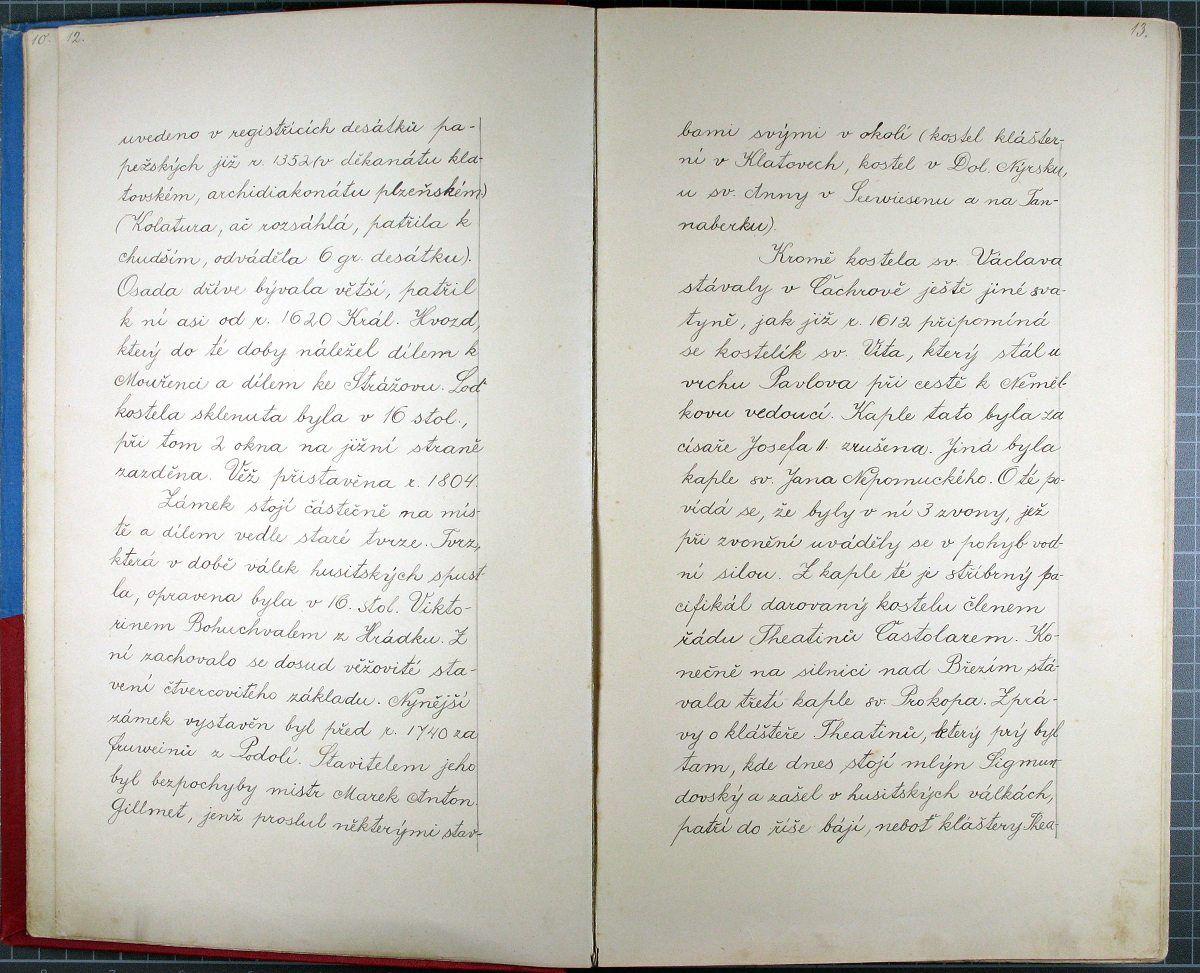 10. 12.
uvedeno v registřících desátků pa-
pežských již r. 1352 (v děkanátu kla-
tovském, archidiakonátu plzeňském)
(Kolatura, ač rozsáhlá, patřila k
chudším, odváděla 6 gr. desátku).
Osada dříve bývala větší, patřil
k ní asi od r. 1620 Král. Hvozd,
který do té doby náležel dílem k
Mouřenci a dílem ke Strážovu. Loď
kostela sklenuta byla v 16 stol.,
při tom 2 okna na jižní straně
zazděna. Věž přistavěna r. 1804.
Zámek stojí částečně na mís-
tě a dílem vedle staré tvrze. Tvrz,
která v době válek husitských spust-
la, opravena byla v 16. stol. Vikto-
rinem Bohuchvalem z Hrádku. Z
ní zachovalo se dosud věžovité sta-
vení čtvercovitého základu. Nynější
zámek vystavěn byl před r. 1740 za
Fruweinů z Podolí. Stavitelem jeho
byl bezpochyby mistr Marek Anton.
Gillmet, jenž proslul některými stav-
13.
bami svými v okolí (kostel klášter-
ní v Klatovech, kostel v Dol. Nýrsku,
u sv. Anny v Seewiesenu a na Tan-
naberku).
Kromě kostela sv. Václava
stávaly v Čachrově ještě jiné sva-
tyně, jak již r. 1612 připomíná
se kostelík sv. Víta, který stál u
vrchu Pavlova při cestě k Něměl-
kovu vedoucí. Kaple tato byla za
císaře Josefa II. zrušena. Jiná byla
kaple sv. Jana Nepomuckého. O té po-
vídá se, že byly v ní 3 zvony, jež
při zvonění uváděly se v pohyb vod-
ní silou. Z kaple té je stříbrný pa-
cifikál darovaný kostelu členem
řádu Theatinů Častolarem. Ko-
nečně na silnici nad Březím stá-
vala třetí kaple sv. Prokopa. Zprá-
vy o klášteře Theatinů, který prý byl
tam, kde dnes stojí mlýn Sigmun
dovský a zašel v husitských válkách,
patří do říše bájí, neboť kláštery Thea-